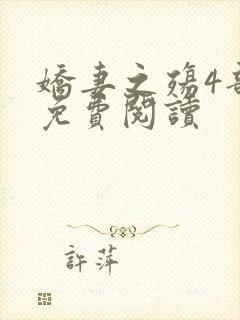 嬌妻之殤4部
免費閱讀
許萍